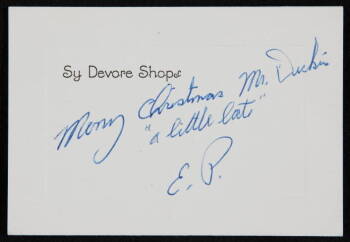 Sy Devore Shops
Merry Christmas Mr. Durkin
"a little late"
E. P.